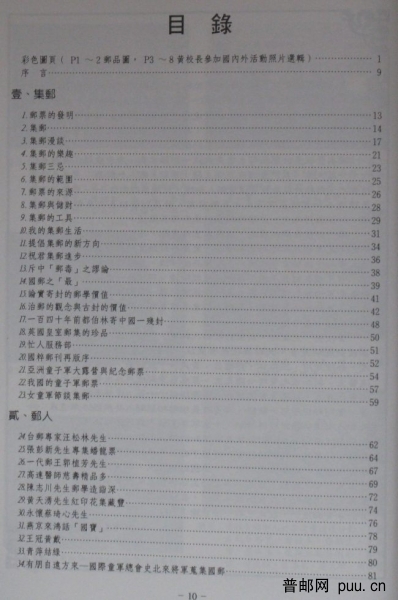 目錄
彩色圖頁( P1 ～2郵品圖， P3 ～8黃校長參加國內外活動照片選輯) 1
序 言 9
壹、集郵
1.郵票的發明 13
2.集郵 14
3.集郵漫談 17
4.集郵的樂趣 21
5.集郵三忌 23
6.集郵的範圍 25
7.郵票的來源 26
8.集郵與儲財 28
9.集郵的工具 29
10.我的集郵生活 31
11.提倡集郵的新方向 34
12.祝君集郵進步 36
13.斥中「郵毒」之謬論 38
14.國郵之「最」 39
15.論實寄封的郵學價值 41
16.治郵的觀念與古封的價值 42
17.一百四十年前都伯林寄中國一幾封 48
18.英國皇室郵集的珍品 50
19.忙人服務部 51
20.國粹郵刊再版序 52
21.亞洲童子軍大露營與紀念郵票 54
22.我國的童子軍郵票 57
23.女童軍節談集郵 59
貳、郵人
24.台郵專家汪松林先生 62
25.張彭新先生專集蟠龍票 64
26.一代郵王郭植芳先生 67
27.高達醫師慈壽精品多
28.陳志川先生郵學造詣深 69
29.黃天湧先生紅印花集藏豐 72
30.永懷蔡琦心先生 74
31.燕京來鴻話「國寶」 76
32.王冠黃戴 79
33.青萍結綠 80
34.有朋自遠方來—國際童軍總會史北來將軍蒐集國郵 81
— 10 —
普邮网 puu.cn